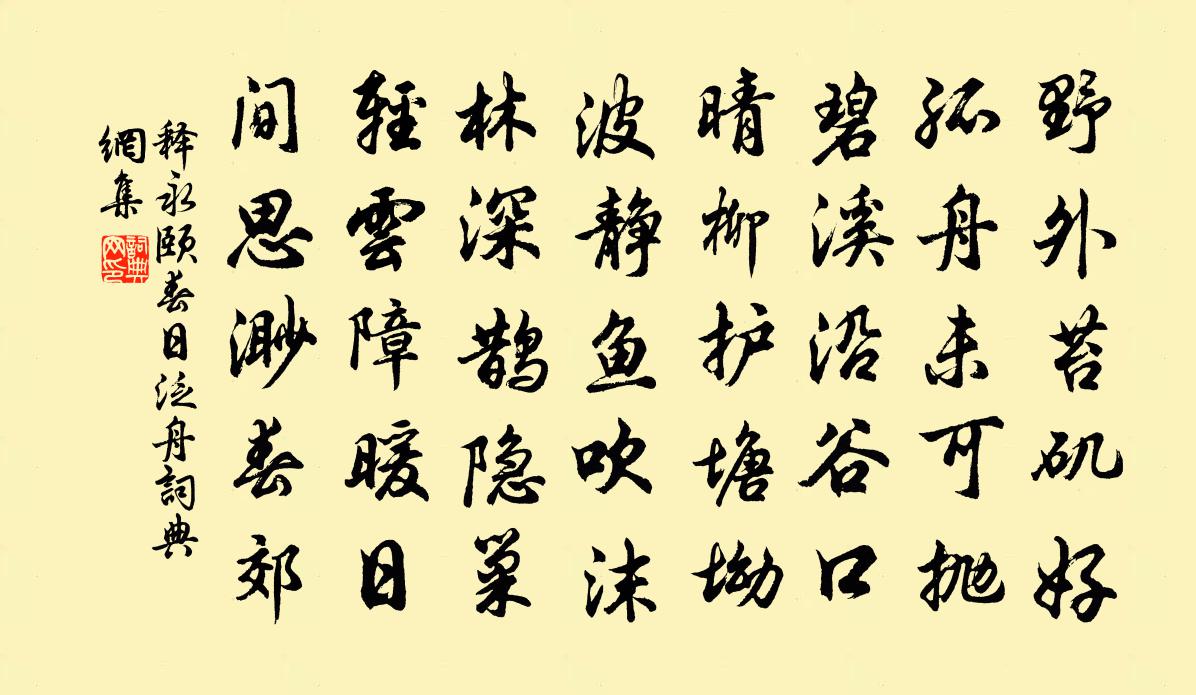 野外苔矶好
孤舟未可抛
碧溪沿谷口
晴柳护塘坳
波静鱼吹沫
林深鹊隐巢
轻雲障暖日
间思渺春郊
释永颐春日泛舟詞典
網集
詞典网印